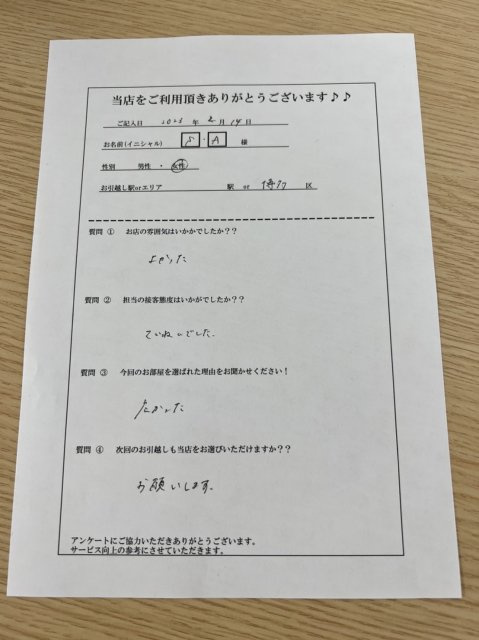 当店をご利用頂きありがとうございます♪♪
ご記入日 年 2 月 14 日
お名前(イニシャル) S ・ A 様
性別 男性 ・ 女性
お引越し駅orエリア 駅 or 博多 区
質問 ① お店の雰囲気はいかかでしたか??
よかった
質問 ② 担当の接客態度はいかがでしたか??
ていねいでした.
質問 ③ 今回のお部屋を選ばれた理由をお聞かせください!
質問 ④ 次回のお引越しも当店をお選びいただけますか??
お願いします。
アンケートにご協力いただきありがとうございます。
サービス向上の参考にさせていただきます。